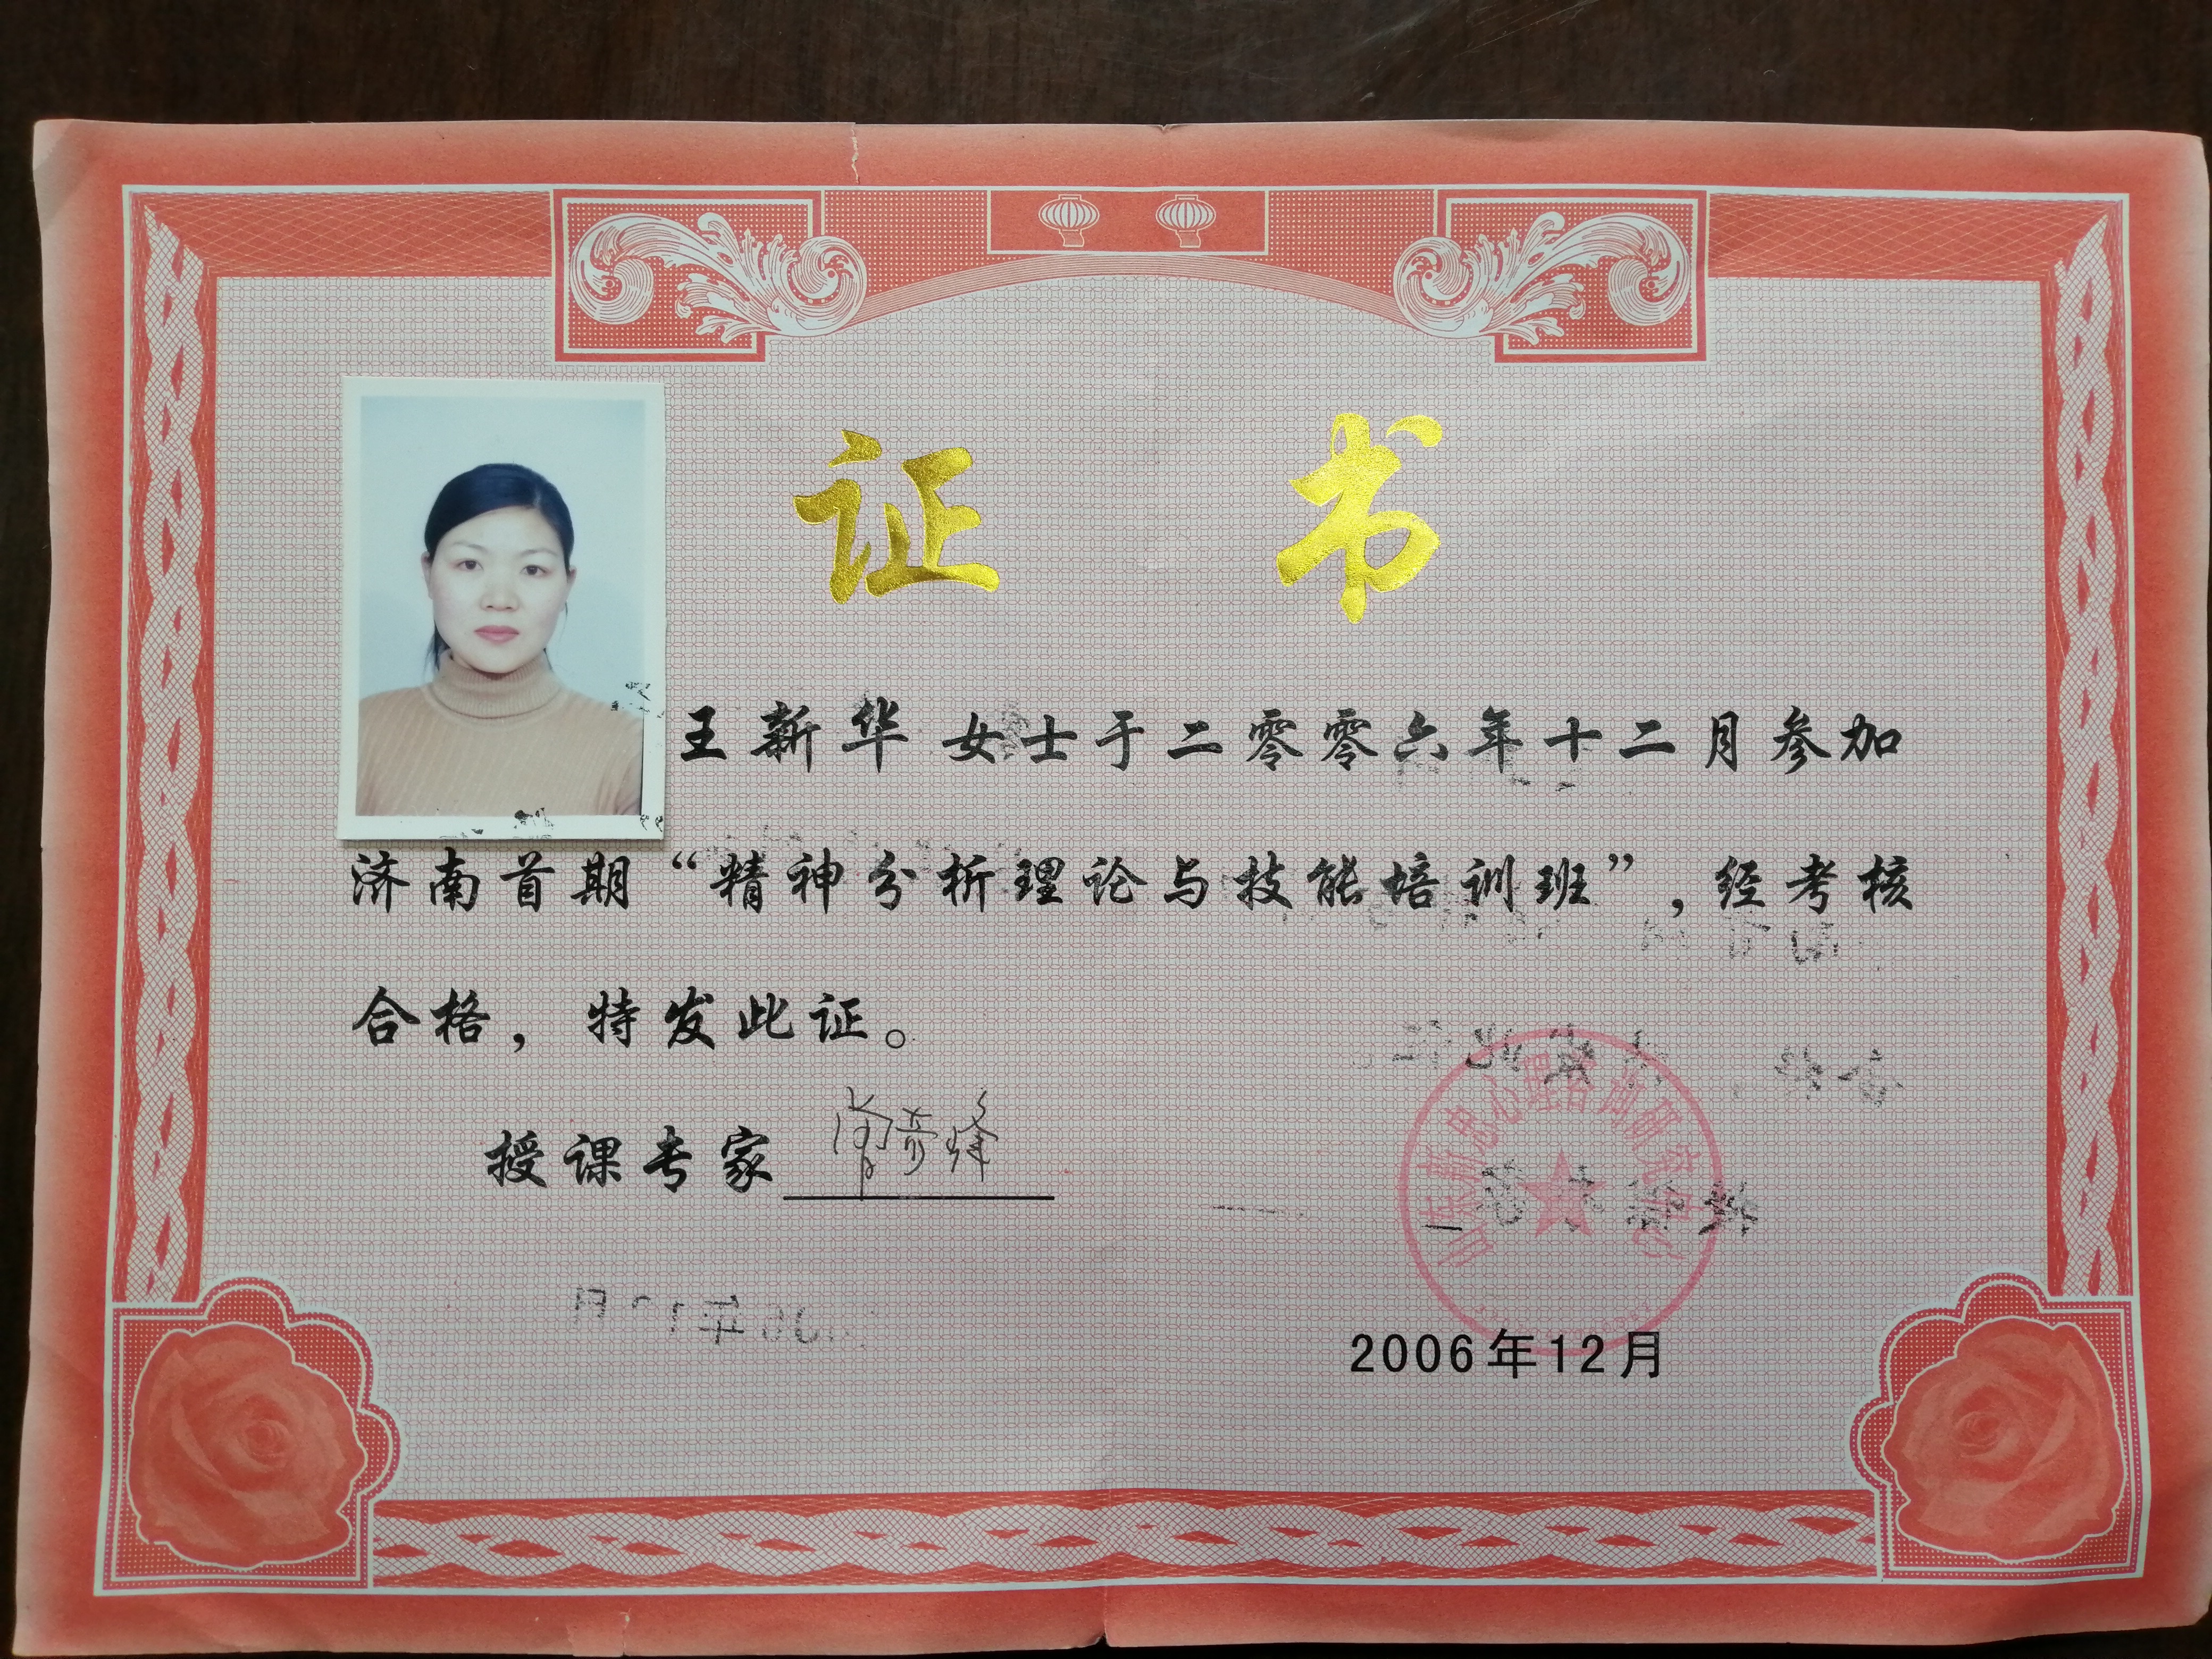 证 书
王新华 女士于二零零六年十二月参加
济南首期“精神分析理论与技能培训班”，经考核
合格，特发此证。
授课专家 曾奇峰
心理咨询研究
2006年12月